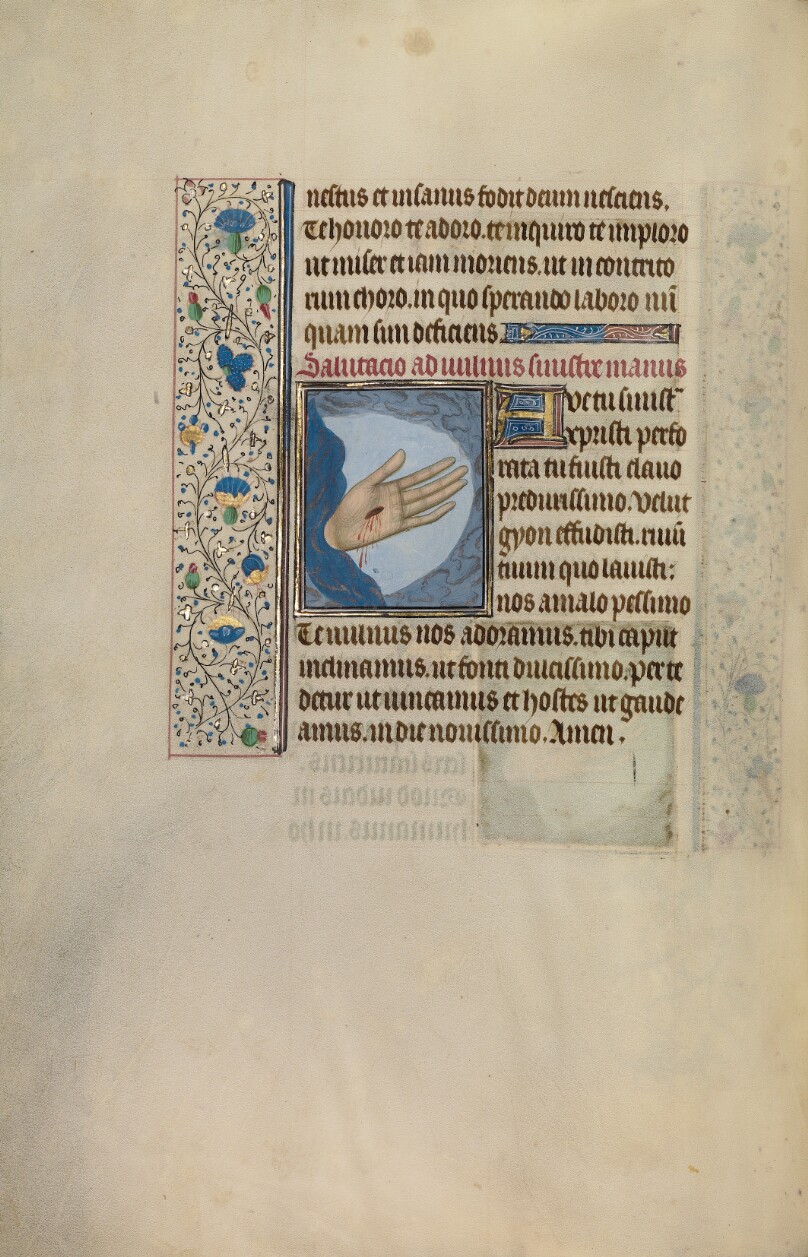 nestus et insanus fodit deum nesciens.
Te honoro te adoro. te inquiro te imploro
ut miser et iam moriens. ut in contrito
rum choro. in quo sperando laboro nū
quam sim deficiens
Salutacio ad vulnus sinistre manus
Ave tu sinist
xpristi perfo
rata tu fuisti clavo
predurissimo. velut
gyon effudisti. rivū
tuum quo lavisti:
nos a malo pessimo
Te vulnus nos adoramus. tibi caput
inclinamus. ut fonti dulcissimo. per te
detur ut vincamus et hostes ut gaude
amus. in die novissimo. Amen.